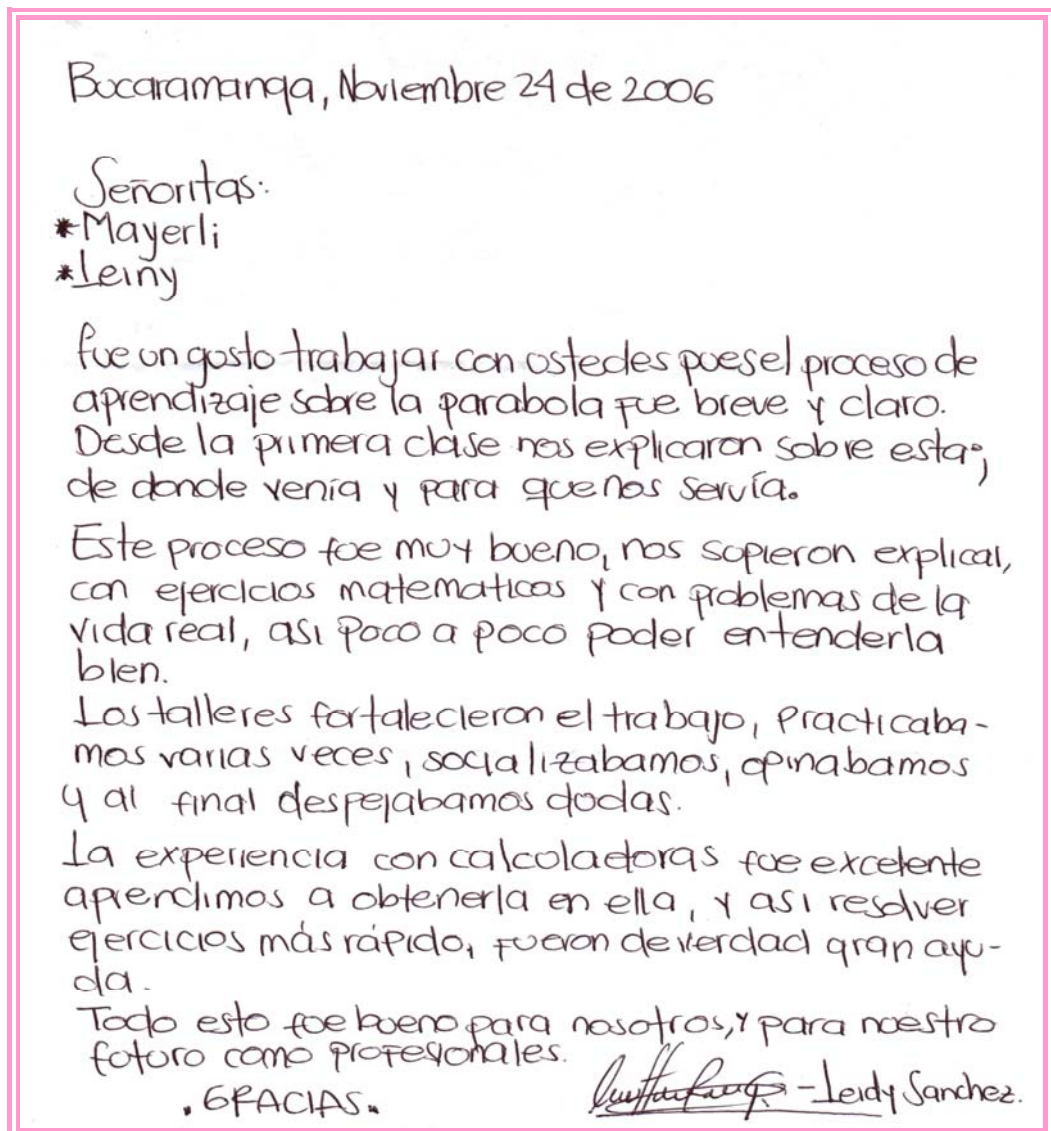 Bucaramanga, Noviembre 24 de 2006
Señoritas:
*Mayerli
*Leiny
fue un gusto trabajar con ustedes pues el proceso de
aprendizaje sobre la parabola fue breve y claro.
Desde la primera clase nos explicaron sobre esta;
de donde venia y para que nos servía.
Este proceso fue muy bueno, nos supieron explicar,
con ejercicios matematicos y con problemas de la
vida real, asi poco a poco poder entenderla
bien.
Los talleres fortalecieron el trabajo, Practicaba-
mos varias veces, socializabamos, opinabamos
y al final despejabamos dudas.
La experiencia con calculadoras fue excelente
aprendimos a obtenerla en ella, y asi resolver
ejercicios más rápido, fueron de verdad gran ayu-
da.
Todo esto fue bueno para nosotros, y para nuestro
futuro como profesionales.
. GRACIAS. - Leidy Sanchez.